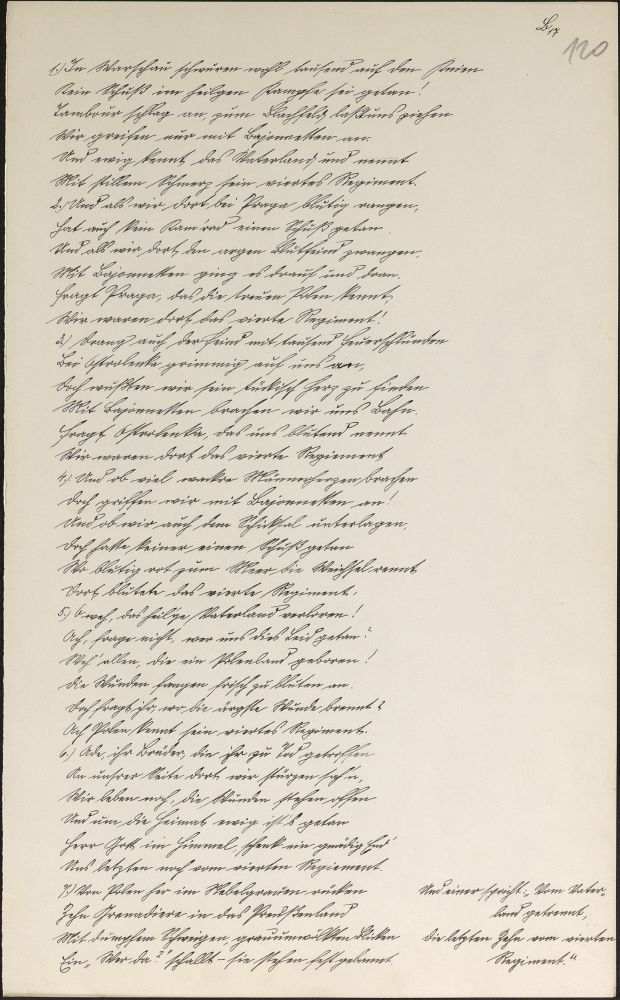 B17
120
1.) In Warschau schwuren wohl tausend auf den Knien
Kein Schuß im heilgen Kampfe sei getan!
Tambour schlag an, zum Blachfeld laßt uns ziehen
Wir greifen nur mit Bajonetten an.
Und ewig kennt das Vaterland und nennt
Mit stillem Schmerz sein viertes Regiment.
2.) Und als wir dort bei Praga blutig rangen,
Hat auch kein Kam'rad einen Schuß getan.
Und als wir dort den argen Blutfeind zwangen,
Mit Bajonetten ging es drauf und dran.
Fragt Praga, das die treuen Polen kennt
Wir waren dort das vierte Regiment!
3.) Drang auch der Feind mit tausend Feuerschlünden
Bei Ostrolenka grimmig auf uns an,
Doch wußten wir sein tückisch Herz zu finden
Mit Bajonetten brachen wir uns Bahn.
Fragt Ostrolenka, das uns blutend nennt
Wir waren dort das vierte Regiment
4.) Und ob viel wackre Männerherzen brachen
Doch griffen wir mit Bajonetten an!
Und ob wir auch dem Schicksal unterlagen,
Doch hatte keiner einen Schuß getan
Wo blutig rot zum Meer die Weichsel rennt
Dort blutete das vierte Regiment.
5.) O weh, das heilge Vaterland verloren!
Ach, fraget nicht, wer uns dies Leid getan?
Weh' allen, die ein Polenland geboren!
Die Wunden fangen frisch zu bluten an.
Doch fragt ihr, wo die ärgste Wunde brennt?
Ach Polen kennt sein viertes Regiment.
6.) Ade, ihr Brüder, die ihr zu Tod getroffen
An unsrer Seite dort wir stürzen sah'n,
Wir leben noch, die Wunden stehen offen
Und um die Heimat ewig ist's getan
Herr Gott im Himmel, schenk ein gnädig End'
Uns letzten noch vom vierten Regiment.
7.) Von Polen her im Nebelgrauen rücken
Zehn Grenadiere in das Preußenland
Mit dumpfem Schweigen, gramumwölkten Blicken
Ein „Wer da?" schallt – sie stehen fest gebannt
Und einer spricht: „Vom Vater-
land getrennt,
die letzten Zehn vom vierten
Regiment."